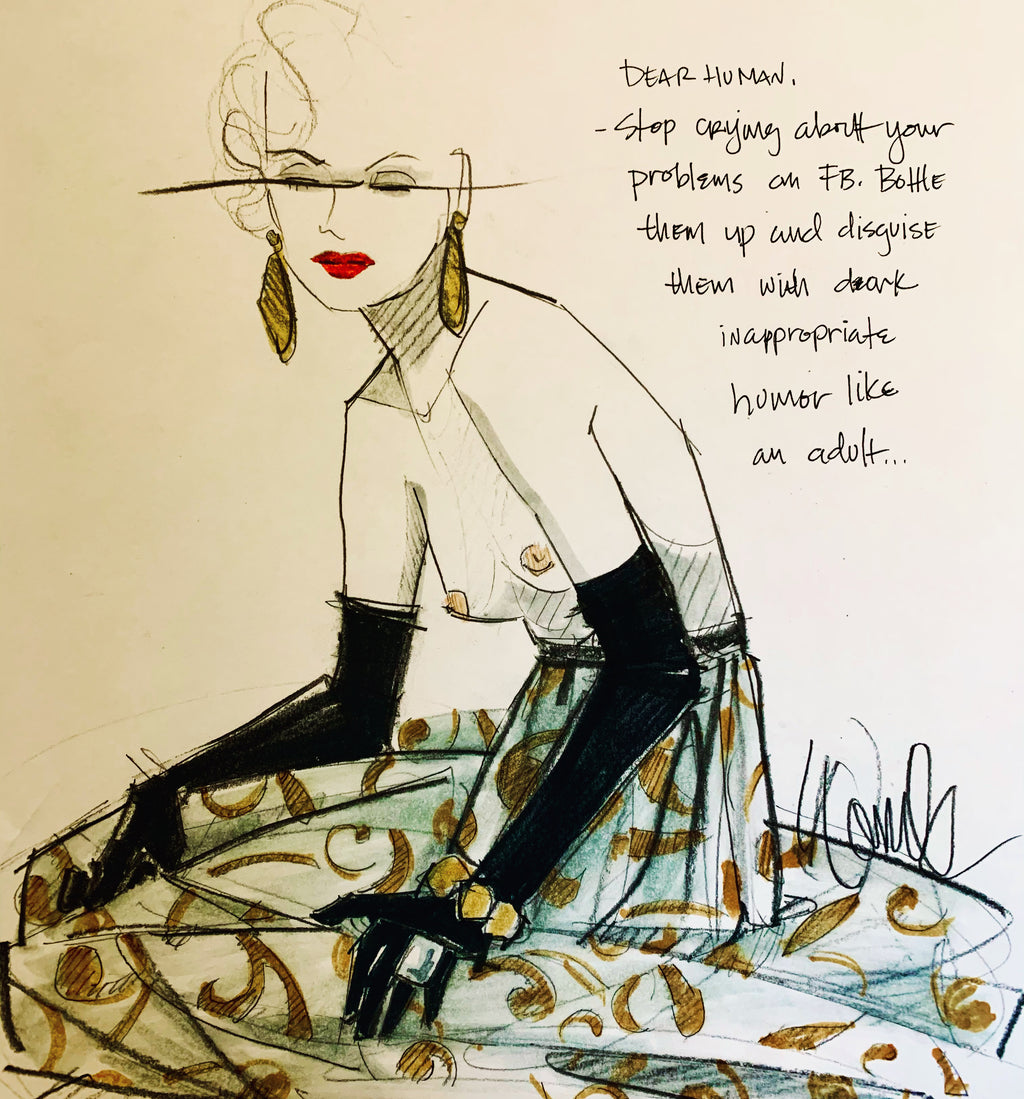 DEAR HUMAN.
- Stop crying about your
problems on FB. Bottle
them up and disguise
them with dark
inappropriate
humor like
an adult...